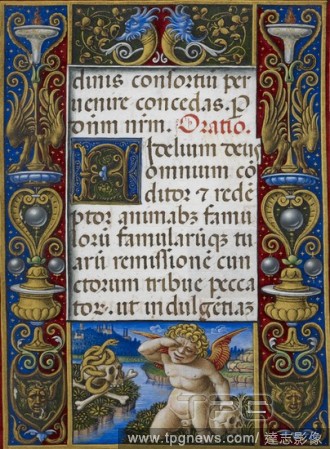 dinis consortiū per
uenire concedas. P
dnim nrm. Oratio.
Fidelium deus
omnium cō
ditor ⁊ redē
ptor animabȝ famu
lorū famularūqȝ tu
arū remissionē cun
ctorum tribue pecca
tor. ut indulgētiaȝ
TPG
www.tpgnews.com / 達志影像